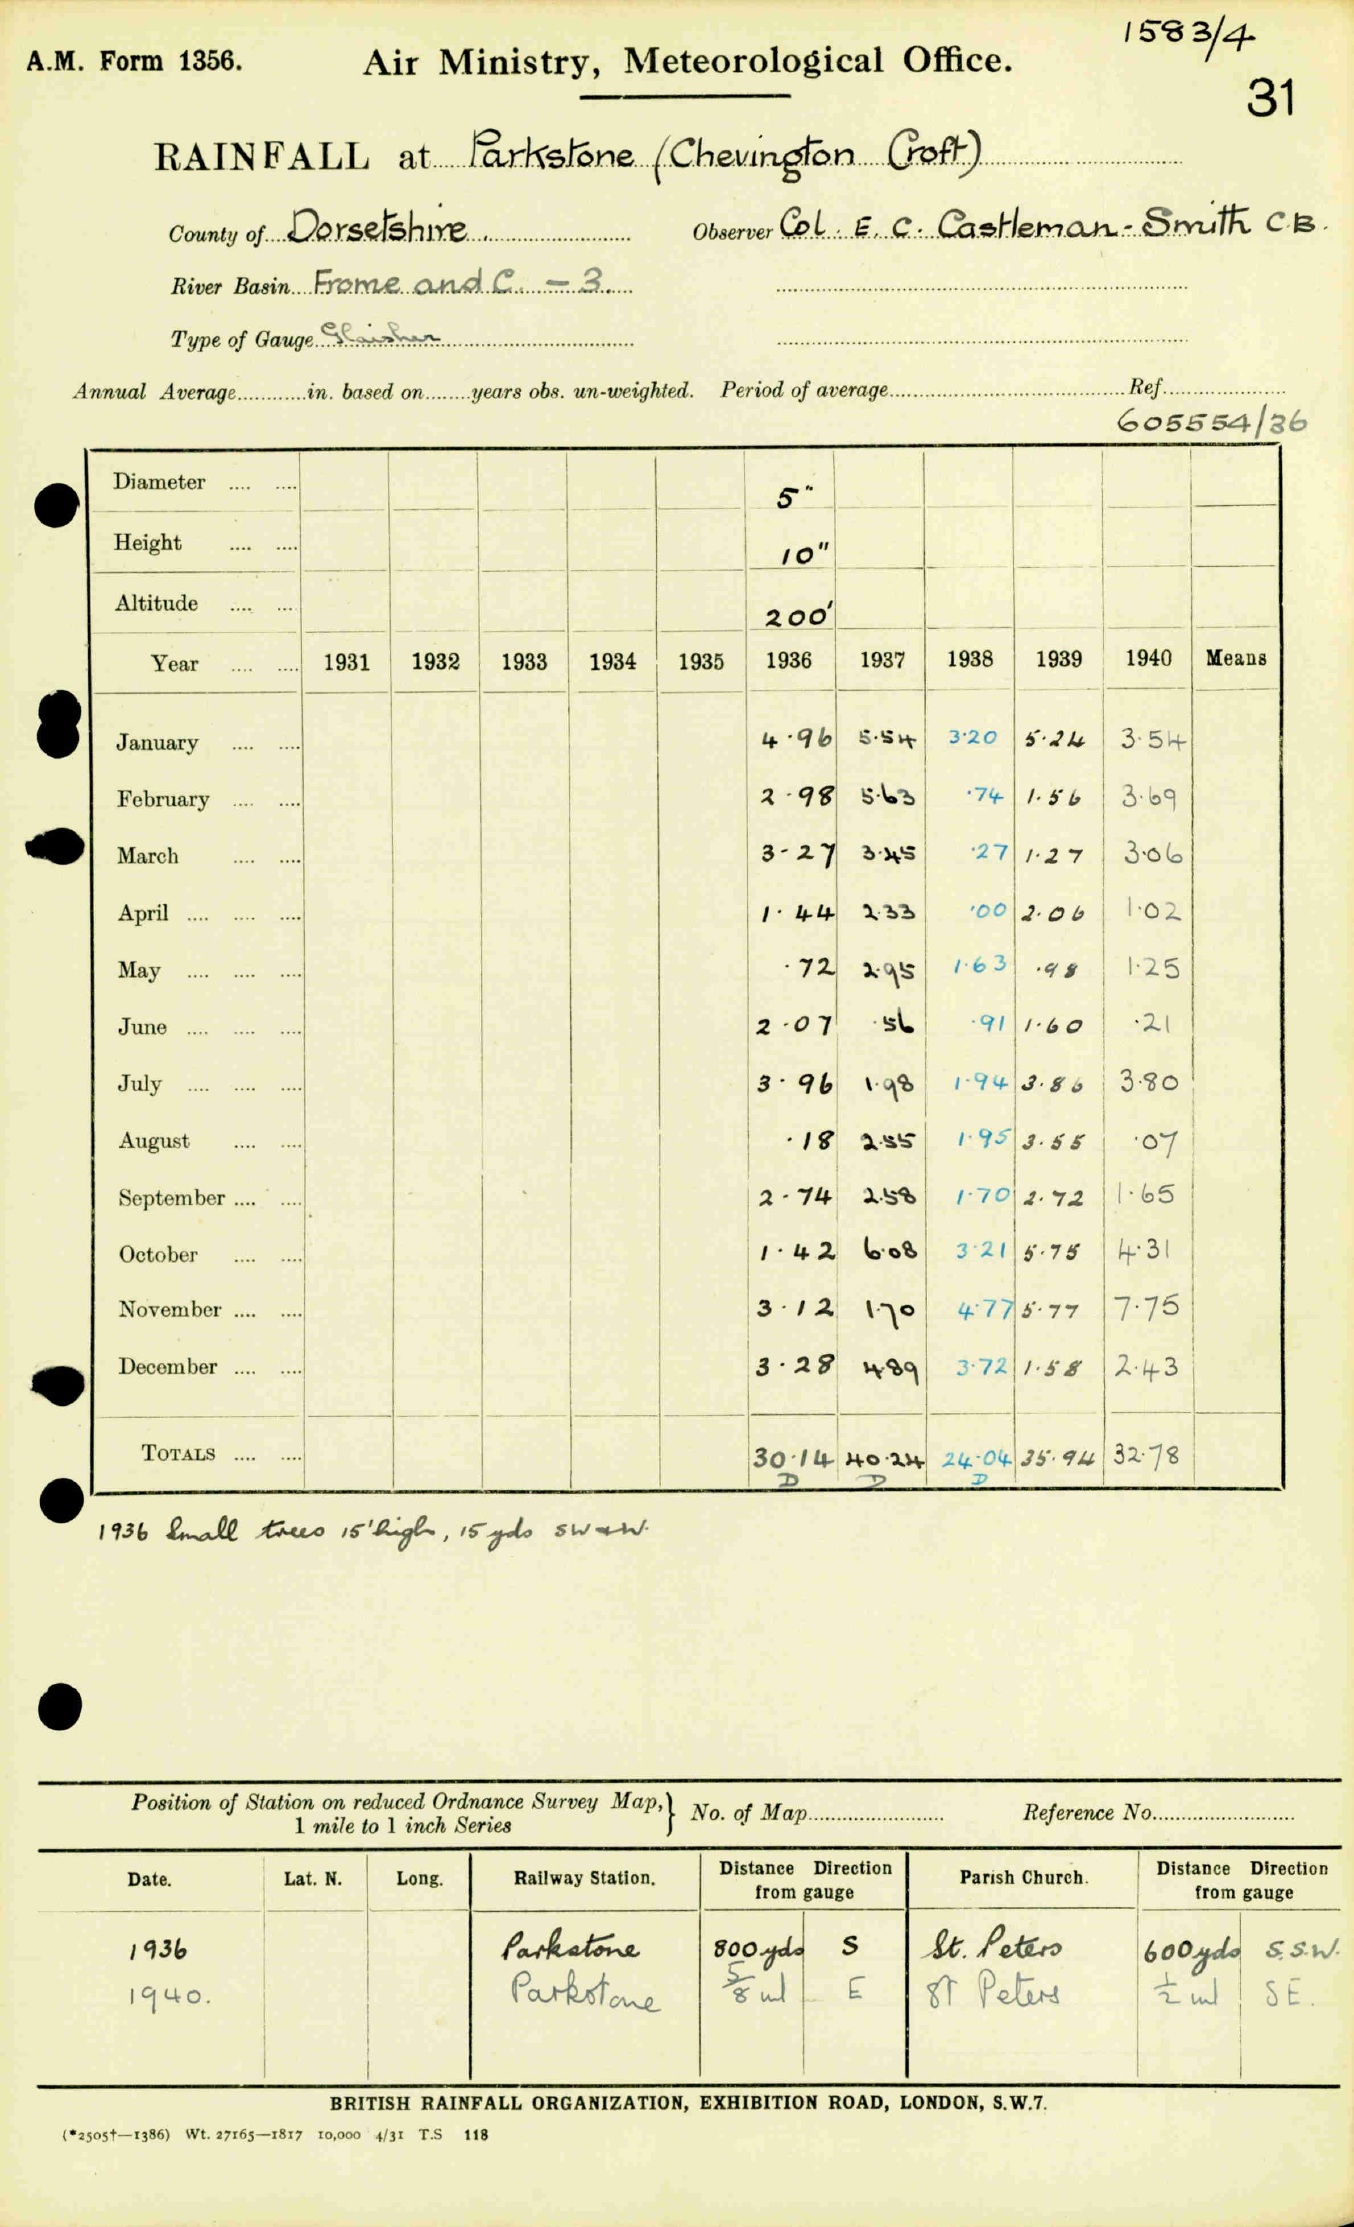 1583/4
A.M. Form 1356. Air Ministry, Meteorological Office.
31
RAINFALL at Parkstone (Chevington Croft)
County of Dorsetshire. Observer Col. E. C. Castleman-Smith C.B.
River Basin Frome and C. – 3.
Type of Gauge Glaisher
Annual Average............in. based on........years obs. un-weighted. Period of average........................................Ref......................
605554/36
Diameter .... .... 5"
Height .... .... 10"
Altitude .... .... 200'
Year .... .... 1931 1932 1933 1934 1935 1936 1937 1938 1939 1940 Means
January .... .... 4.96 5.54 3.20 5.24 3.54
February .... .... 2.98 5.63 .74 1.56 3.69
March .... .... 3.27 3.45 .27 1.27 3.06
April .... .... .... 1.44 2.33 .00 2.06 1.02
May .... .... .... .72 2.95 1.63 .98 1.25
June .... .... .... 2.07 .56 .91 1.60 .21
July .... .... .... 3.96 1.98 1.94 3.86 3.80
August .... .... .18 2.55 1.95 3.55 .07
September .... .... 2.74 2.58 1.70 2.72 1.65
October .... .... 1.42 6.08 3.21 5.75 4.31
November .... .... 3.12 1.70 4.77 5.77 7.75
December .... .... 3.28 4.89 3.72 1.58 2.43
TOTALS .... .... 30.14 40.24 24.04 35.94 32.78
D D D
1936 Small trees 15' high, 15 yds SW & W.
Position of Station on reduced Ordnance Survey Map,} No. of Map........................ Reference No.........................
1 mile to 1 inch Series
Date. Lat. N. Long. Railway Station. Distance Direction from gauge Parish Church. Distance Direction from gauge
1936 Parkstone 800 yds S St. Peters 600 yds S.S.W.
1940. Parkstone 5/8 ml E St Peters 1/2 ml SE.
BRITISH RAINFALL ORGANIZATION, EXHIBITION ROAD, LONDON, S.W.7.
(*2505†—1386) Wt. 27165—1817 10,000 4/31 T.S 118